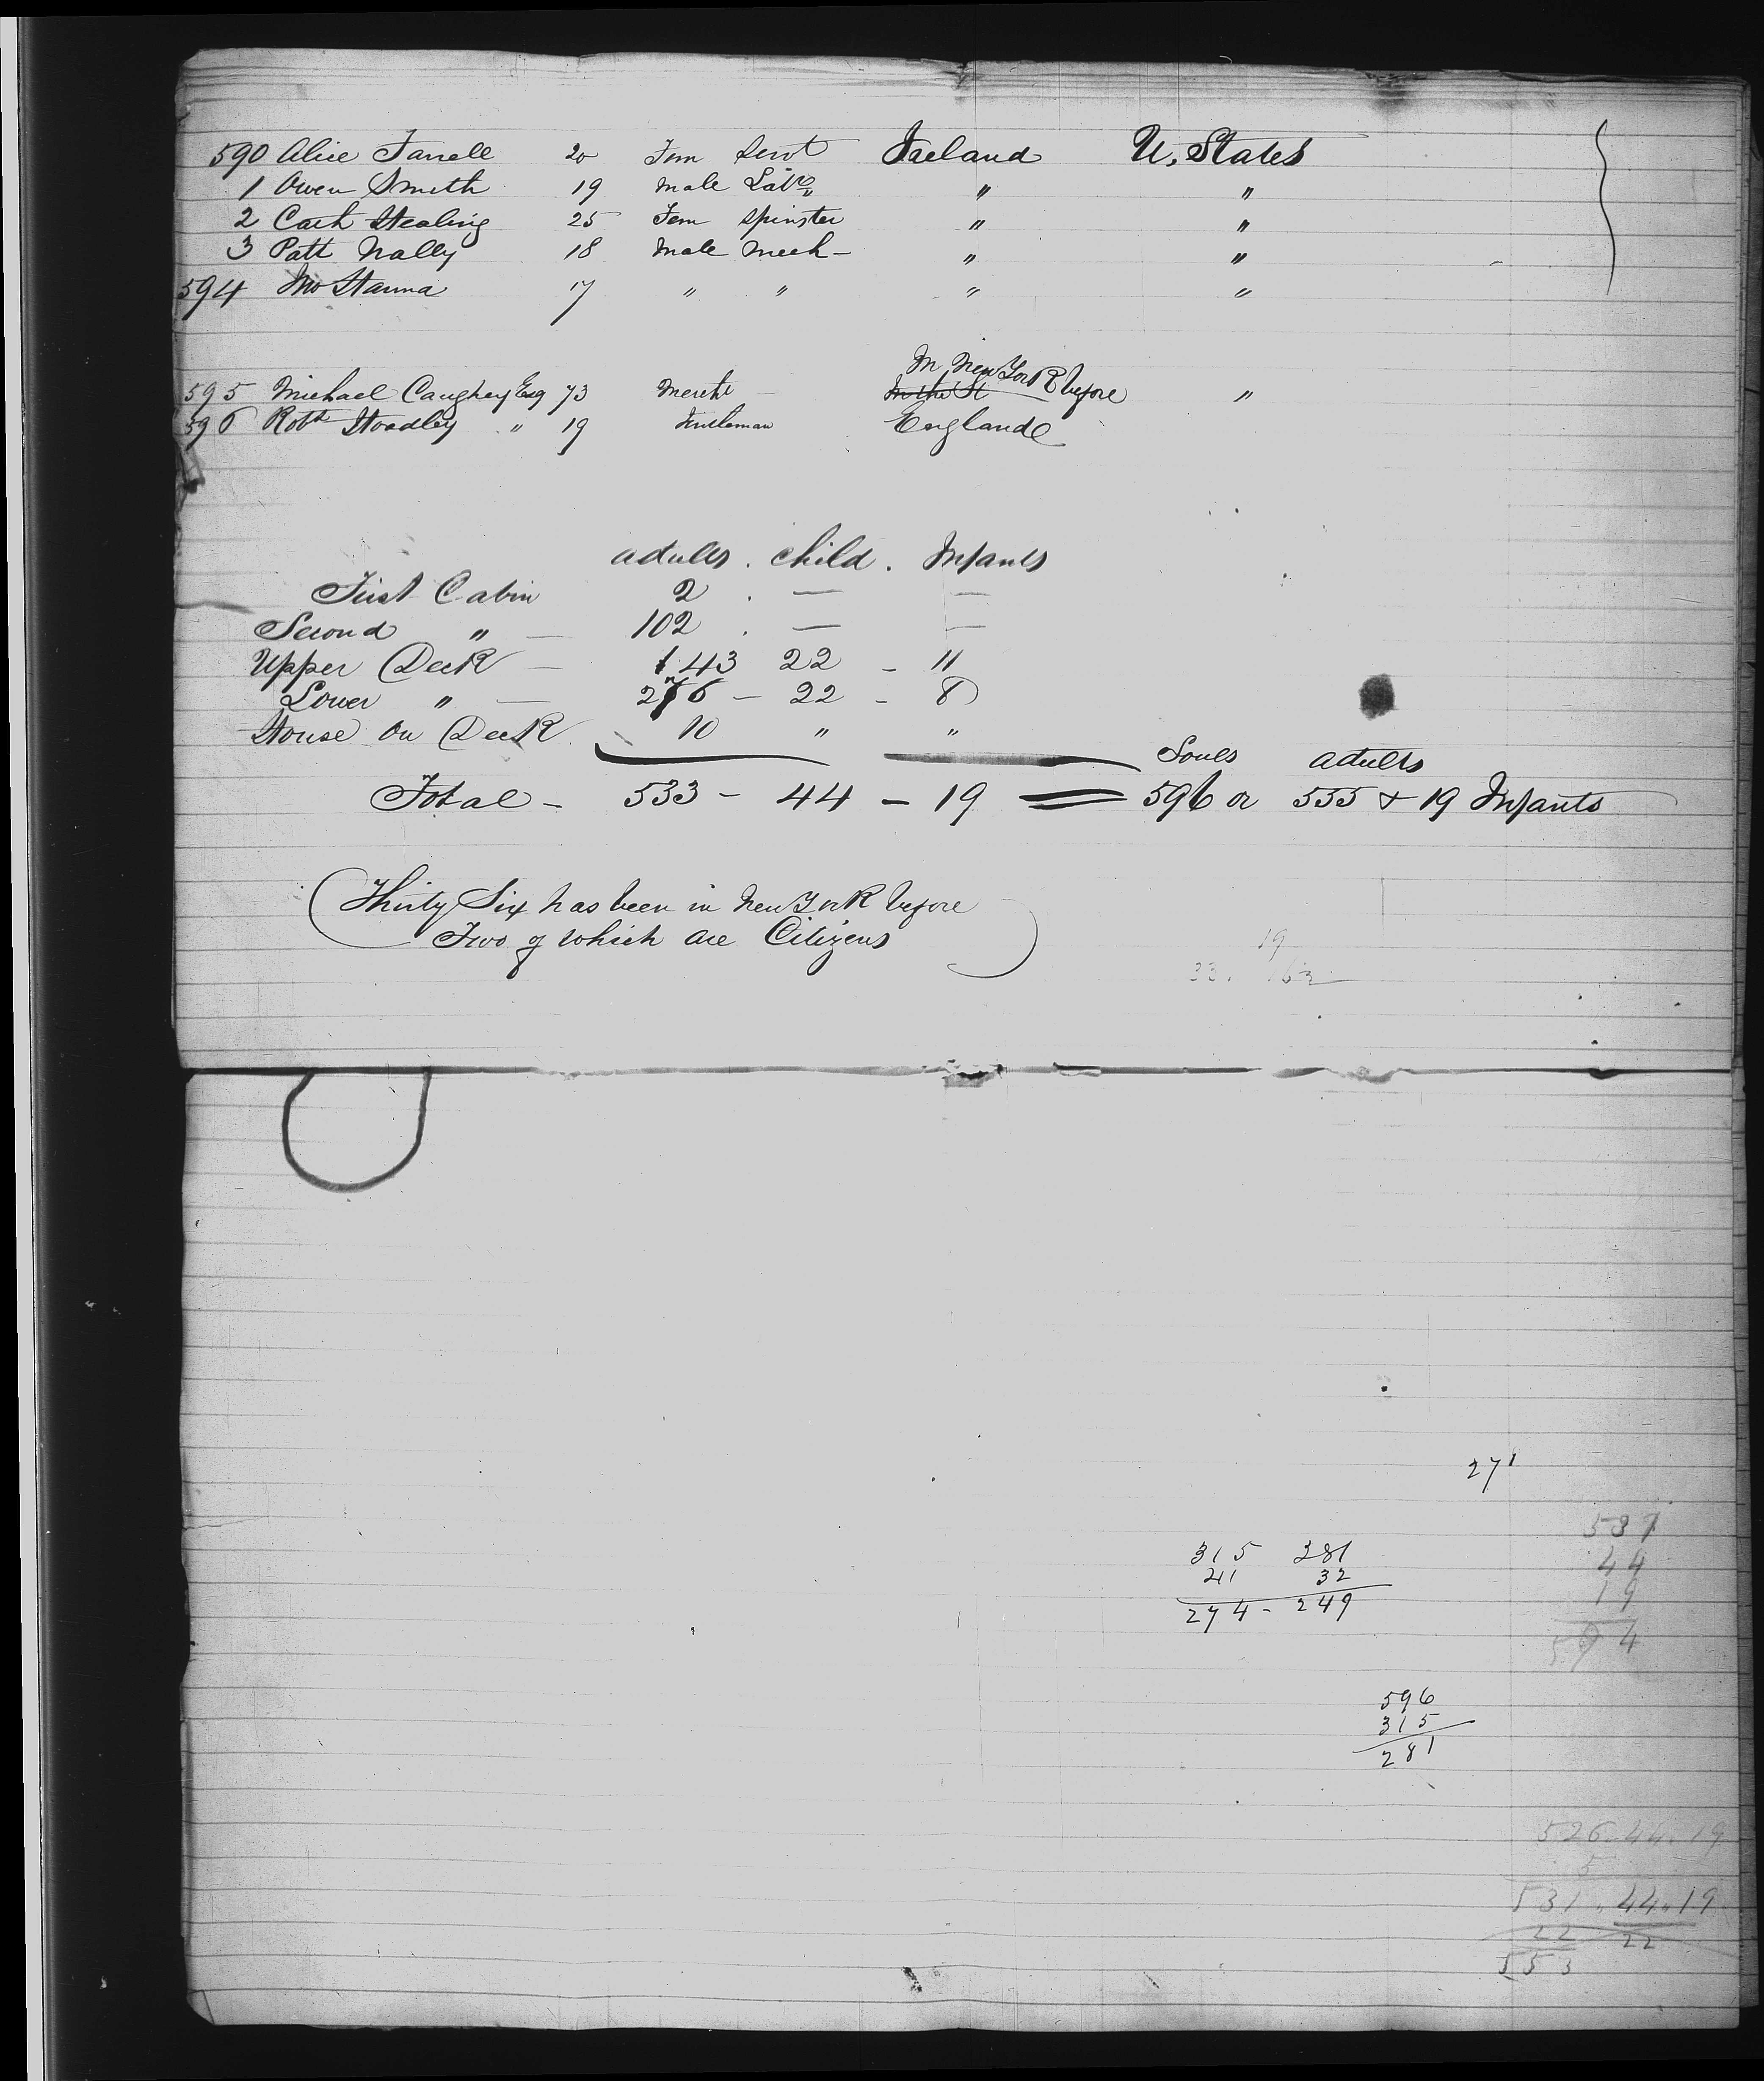 590 Alice Farrell 20 Fem Servt Ireland U. States
1 Owen Smith 19 Male Labr " "
2 Cath Stealing 25 Fem Spinster " "
3 Patt Nally 18 Male Mech - " "
594 Jno Hanna 17 " " " "
In New York before
595 Michael Caughey Esq 73 Mercht - In the St "
596 Robt Stoadley " 19 Gentleman England
adults . Child . Infants
First Cabin 2 . — —
Second " — 102 . — —
Upper Deck — 143 22 - 11
Lower " — 276 — 22 - 8
House on Deck 10 " "
Souls adults
Total - 533 - 44 - 19 = 596 or 555 & 19 Infants
(Thirty Six has been in New York before
Two of which are Citizens)
19
33.
271
315 281
41 32
274 - 249
531
44
19
594
596
315
281
526. 44. 19
5
531. 44. 19
22 22
553